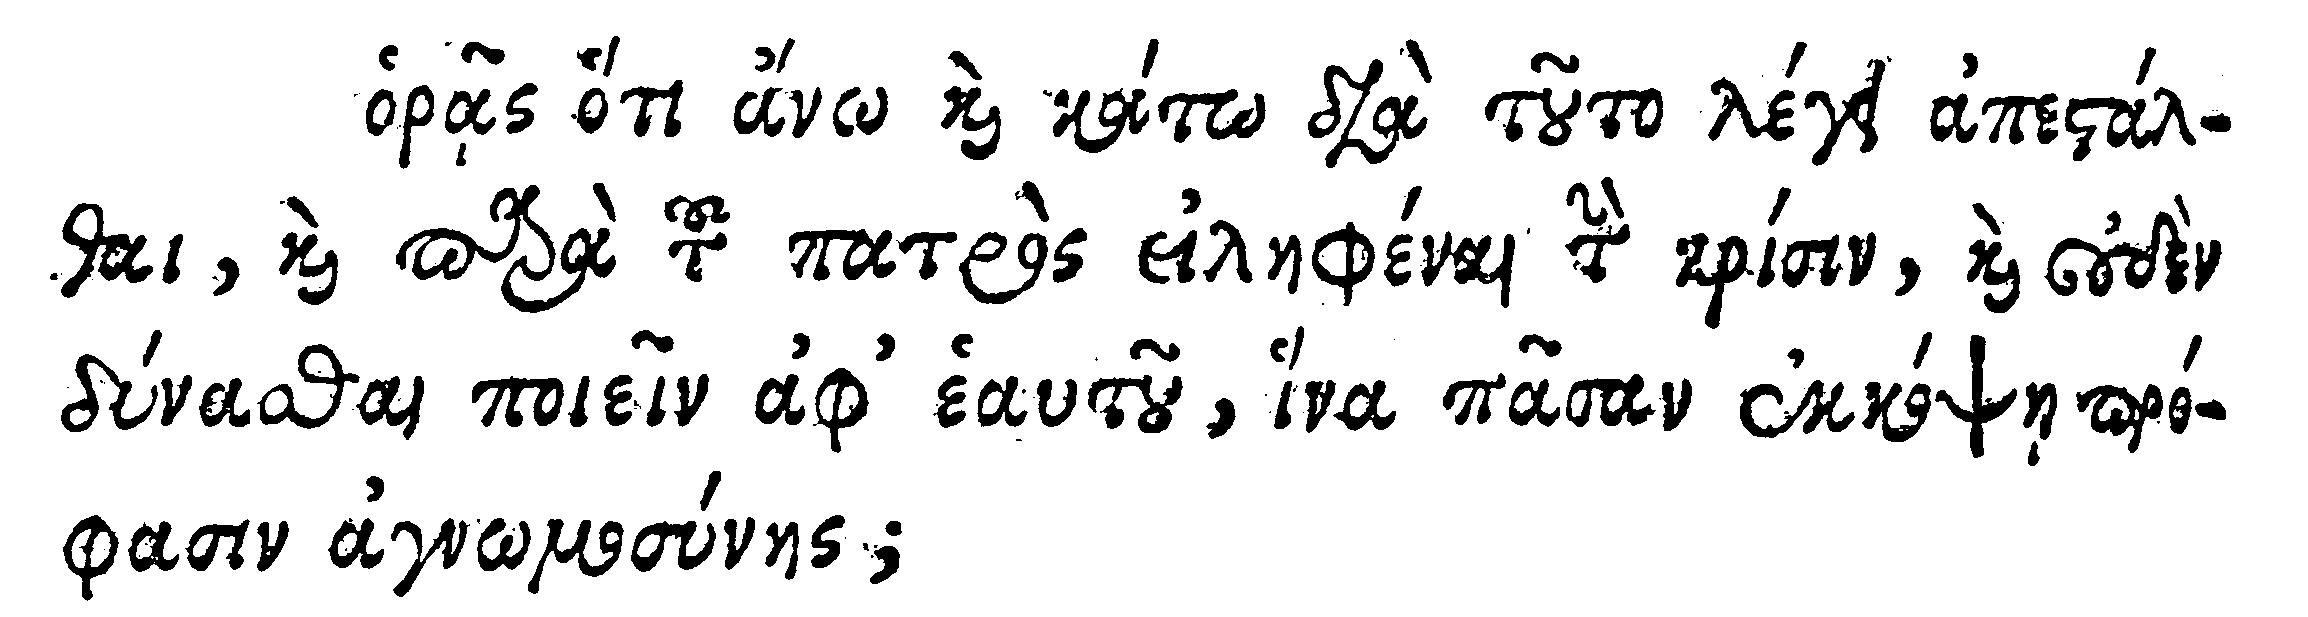 ὁρᾷς ὅτι ἄνω καὶ κάτω διὰ τοῦτο λέγει ἀπεστάλ-
θαι, καὶ παρὰ τοῦ πατρὸς εἰληφέναι τὴν κρίσιν, καὶ οὐδὲν
δύνασθαι ποιεῖν ἀφ’ ἑαυτοῦ, ἵνα πᾶσαν ἐκκόψῃ πρό-
φασιν ἀγνωμοσύνης;